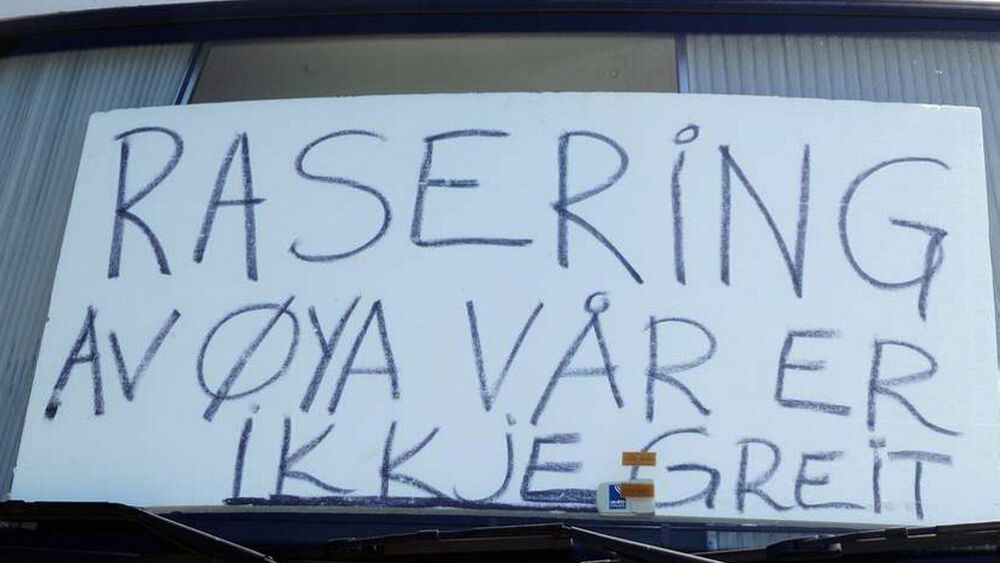 RASERING
AV ØYA VÅR ER
IKKJE GREIT